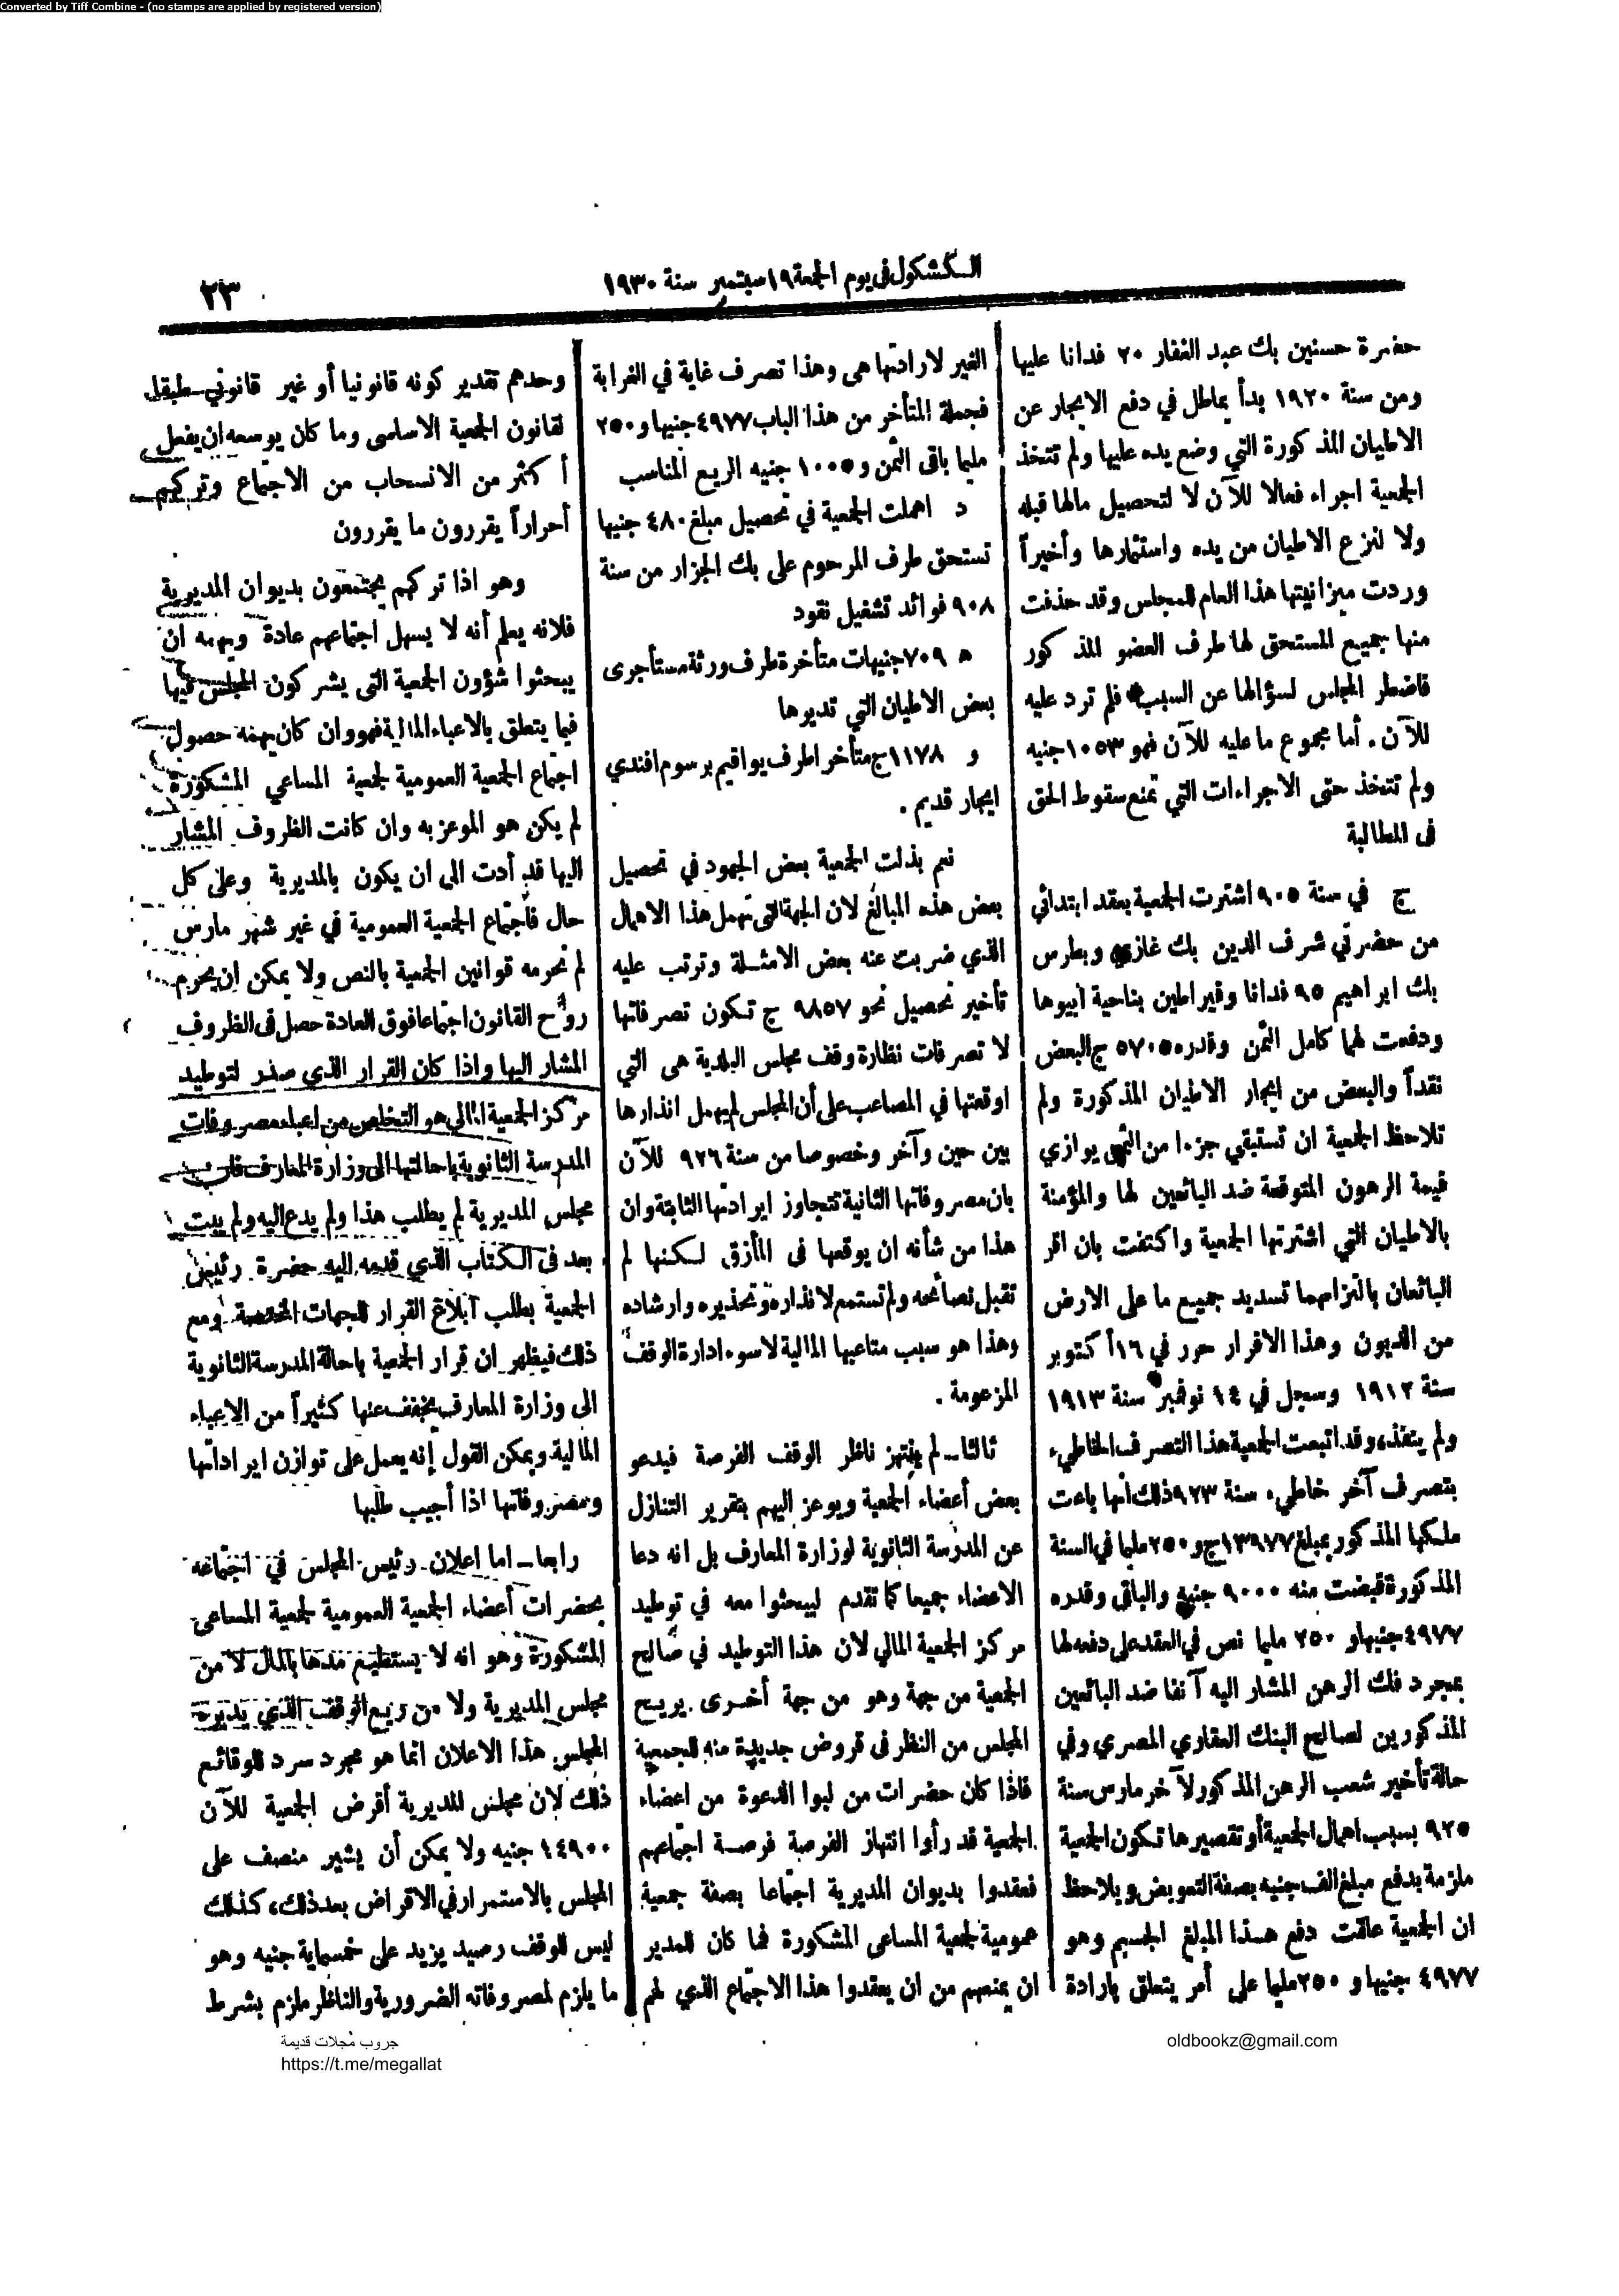 Converted by Tiff Combine - (no stamps are applied by registered version)
الكشكول في يوم الجمعة ١٩ سبتمبر سنة ١٩٣٠
٢٣
حضرة حسنين بك عبد الغفار ٢٠ فدانا عليها
ومن سنة ١٩٢٠ بدأ يماطل في دفع الايجار عن
الاطيان المذكورة التي وضع يده عليها ولم تتخذ
الجمعية اجراء فعالا للآن لا لتحصيل مالها قبله
ولا لنزع الاطيان من يده واستثمارها وأخيراً
وردت ميزانيتها هذا العام للمجلس وقد حذفت
منها جميع المستحق لها طرف العضو المذكور
فاضطر المجلس لسؤالها عن السبب فلم ترد عليه
للآن. أما مجموع ما عليه للآن فهو ١٠٥٣ جنيه
ولم تتخذ حتى الاجراءات التي تمنع سقوط الحق
فى المطالبة
ج في سنة ٩٠٥ اشترت الجمعية بعقد ابتدائي
من حضرتي شرف الدين بك غازي وبطرس
بك ابراهيم ٩٥ فدانا وقيراطين بناحية ابيوها
ودفعت لهما كامل الثمن وقدره ٥٧٠٥ ج البعض
نقداً والبعض من ايجار الاطيان المذكورة ولم
تلاحظ الجمعية ان تستبقي جزءا من الثمن يوازي
قيمة الرهون المتوقعة ضد البائعين لها والمؤمنة
بالاطيان التي اشترتها الجمعية واكتفت بان اقر
البائعان بالتزامهما تسديد جميع ما على الارض
من الديون وهذا الاقرار حرر في ١٦ أكتوبر
سنة ١٩١٢ وسجل في ١٤ نوفمبر سنة ١٩١٣
ولم ينفذ، وقد اتبعت الجمعية هذا التصرف الخاطيء
بتصرف آخر خاطيء سنة ٩٢٣ ذلك أنها باعت
ملكها المذكور بمبلغ ١٣٩٧٧ ج و ٢٥٠ مليما في السنة
المذكورة قبضت منه ٩٠٠٠ جنيه والباقي وقدره
٤٩٧٧ جنيها و ٢٥٠ مليما نص في العقد على دفعه لها
بمجرد فك الرهن المشار اليه آنفا ضد البائعين
المذكورين لصالح البنك العقاري المصري وفي
حالة تأخير شعب الرهن المذكور لآخر مارس سنة
٩٢٥ بسبب اهمال الجمعية أو تقصيرها تكون الجمعية
ملزمة بدفع مبلغ الف جنيه بصفة التعويض ويلاحظ
ان الجمعية علقت دفع هذا المبلغ الجسيم وهو
٤٩٧٧ جنيها و ٢٥٠ مليما على أمر يتعلق بارادة
الغير لا رادتها هي وهذا تصرف غاية في الغرابة
فجملة المتأخر من هذا الباب ٤٩٧٧ جنيها و ٢٥٠
مليما باقى الثمن و ١٠٠٥ جنيه الريع المناسب
د اهملت الجمعية في تحصيل مبلغ ٤٨٠ جنيها
تستحق طرف المرحوم على بك الجزار من سنة
٩٠٨ فوائد تشغيل نقود
ه ٧٠٩ جنيهات متأخرة طرف ورثة مستأجرى
بعض الاطيان التي تديرها
و ١١٧٨ ج متأخر اطرف يواقيم برسوم افندي
ايجار قديم .
نعم بذلت الجمعية بعض الجهود في تحصيل
بعض هذه المبالغ لان الجهة التي تهمل هذا الاهمال
الذي ضربت عنه بعض الامثلة وترتب عليه
تأخير تحصيل نحو ٩٨٥٧ ج تكون تصرفاتها
لا تصرفات نظارة وقف مجلس البلدية هى التي
اوقعتها في المصاعب على أن المجلس لم يهمل انذارها
بين حين وآخر وخصوصا من سنة ٩٢٦ للآن
بان مصروفاتها الثانية تتجاوز ايرادتها الثابتة وان
هذا من شأنه ان يوقعها فى المأزق لكنها لم
تقبل نصائحه ولم تستمع لانذاره وتحذيره وارشاده
وهذا هو سبب متاعبها المالية لاسوء ادارة الوقف
المزعومة .
ثالثا ــ لم ينتهز ناظر الوقف الفرصة فيدعو
بعض أعضاء الجمعية ويوعز اليهم بتقرير التنازل
عن المدرسة الثانوية لوزارة المعارف بل انه دعا
الاعضاء جميعا كما تقدم ليبحثوا معه في توطيد
مركز الجمعية المالي لان هذا التوطيد في صالح
الجمعية من جهة وهو من جهة أخرى يريح
المجلس من النظر فى قروض جديدة منه للجمعية
فاذا كان حضرات من لبوا الدعوة من اعضاء
الجمعية قد رأوا انتهاز الفرصة فرصة اجتماعهم
فعقدوا بديوان المديرية اجتماعا بصفة جمعية
عمومية لجمعية المساعى المشكورة فما كان للمدير
ان يمنعهم من ان يعقدوا هذا الاجتماع الذي لهم
وحدهم تقدير كونه قانونيا أو غير قانوني طبقا
لقانون الجمعية الاساسى وما كان يوسعه ان يفعل
أكثر من الانسحاب من الاجتماع وتركهم
أحراراً يقررون ما يقررون
وهو اذا تركهم يجتمعون بديوان المديرية
فلانه يعلم أنه لا يسهل اجتماعهم عادة ويهمه ان
يبحثوا شؤون الجمعية التى يشركون المجلس فيها
فيما يتعلق بالاعباء المالية فهو وان كان يهمه حصول
اجتماع الجمعية العمومية لجمعية المساعي المشكورة
لم يكن هو الموعز به وان كانت الظروف المشار
اليها قد أدت الى ان يكون بالمديرية وعلى كل
حال فاجتماع الجمعية العمومية في غير شهر مارس
لم تحرمه قوانين الجمعية بالنص ولا يمكن ان يحرم
روح القانون اجتماعا فوق العادة حصل فى الظروف
المشار اليها واذا كان القرار الذي صدر لتوطيد
مركز الجمعية المالى هو التخلص من اعباء مصروفات
المدرسة الثانوية باحالتها الى وزارة المعارف فان
مجلس المديرية لم يطلب هذا ولم يدع اليه ولم يبت
بعد فى الكتاب الذي قدمه اليه حضرة رئيس
الجمعية بطلب ابلاغ القرار للجهات المختصة ومع
ذلك فيظهر ان قرار الجمعية باحالة المدرسة الثانوية
الى وزارة المعارف يخفف عنها كثيراً من الاعباء
المالية ويمكن القول إنه يعمل على توازن ايراداتها
ومصروفاتها اذا أجيب طلبها
رابعا ــ اما اعلان رئيس المجلس في اجتماعه
بحضرات أعضاء الجمعية العمومية لجمعية المساعى
المشكورة وهو انه لا يستطيع مدها بالمال لا من
مجلس المديرية ولا من ريع الوقف الذي يديره
المجلس هذا الاعلان انما هو مجرد سرد للوقائع
ذلك لان مجلس المديرية أقرض الجمعية للآن
١٤٩٠٠ جنيه ولا يمكن أن يشير منصف على
المجلس بالاستمرار في الاقراض بعد ذلك، كذلك
ليس للوقف رصيد يزيد على خمسماية جنيه وهو
ما يلزم لمصروفاته الضرورية والناظر ملزم بشرط
جروب مجلات قديمة
https://t.me/megallat
oldbookz@gmail.com